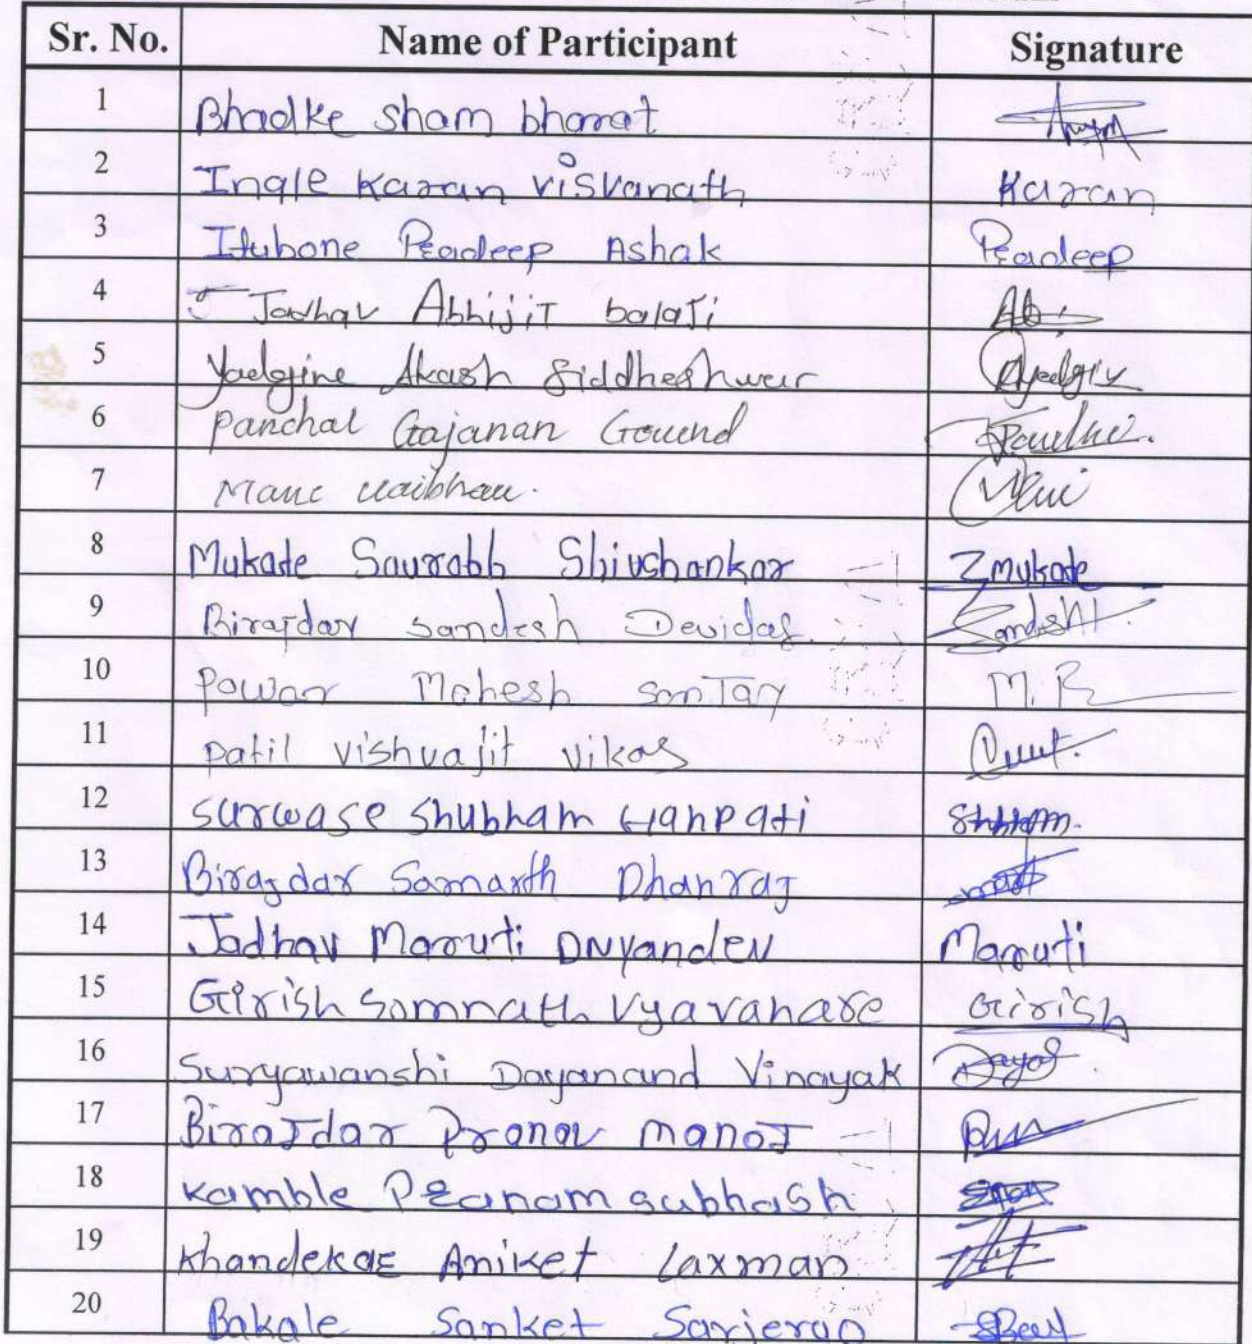 Sr. No. Name of Participant Signature
1 Bhadke sham bharat
2 Ingle Karan Visvanath Karan
3 Itubone Pradeep Ashak Pradeep
4 Jadhav Abhijit balaji
5 Yadgire Akash Siddheshwar
6 Panchal Gajanan Govind
7 Mane Vaibhav.
8 Mukade Saurabh Shivshankar Zmukade
9 Birajdar Sandesh Devidas Sandesh
10 Pawar Mahesh M.R
11 Patil Vishvajit Vikas
12 Surwase Shubham Ganpati
13 Birajdar Samarth Dhanraj
14 Jadhav Maruti Dnyandev Maruti
15 Girish Somnath Vyavahare Girish
16 Suryawanshi Dayanand Vinayak
17 Birajdar Pranav Manoj
18 Kamble Pranam Subhash
19 Khandekar Aniket Laxman
20 Bakale Sanket Sarjerao